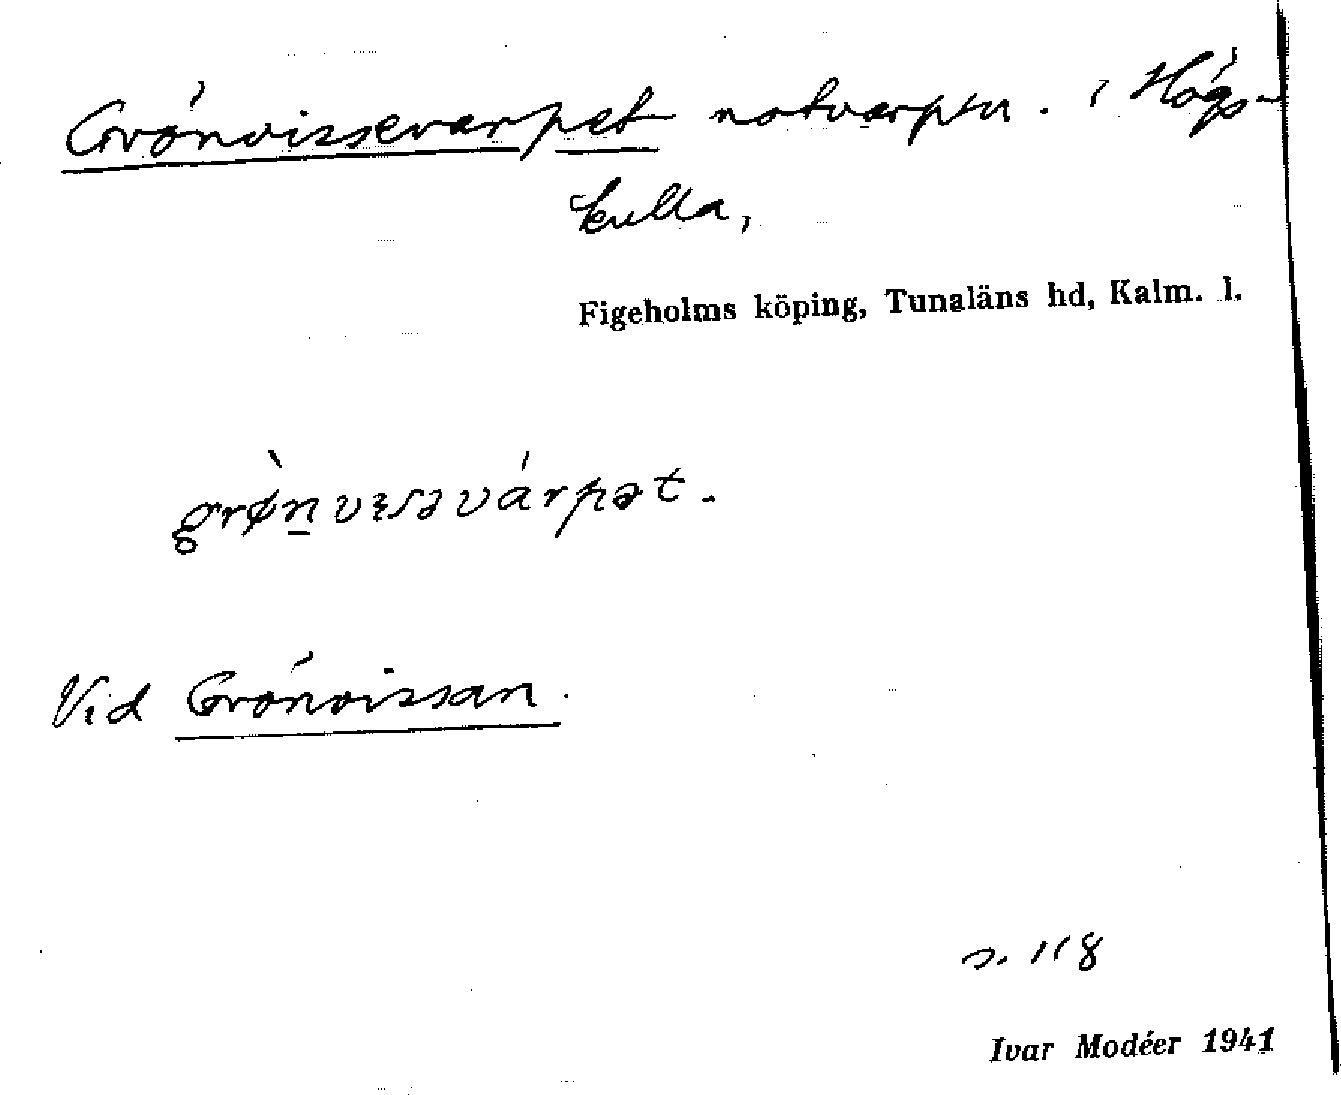 Grönvissevarpet notvarpen. i Högs-
kulla,
Figeholms köping, Tunaläns hd, Kalm. l.
grø̀nvɪsəvárpət.
Vid Grönvissan.
s. 118
Ivar Modéer 1941